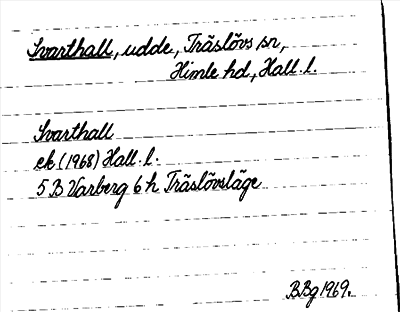 Svarthall, udde, Träslövs sn,
Himle hd, Hall. l.
Svarthall
ek (1968) Hall. l.
5 B Varberg 6 h Träslövsläge
BBg 1969.